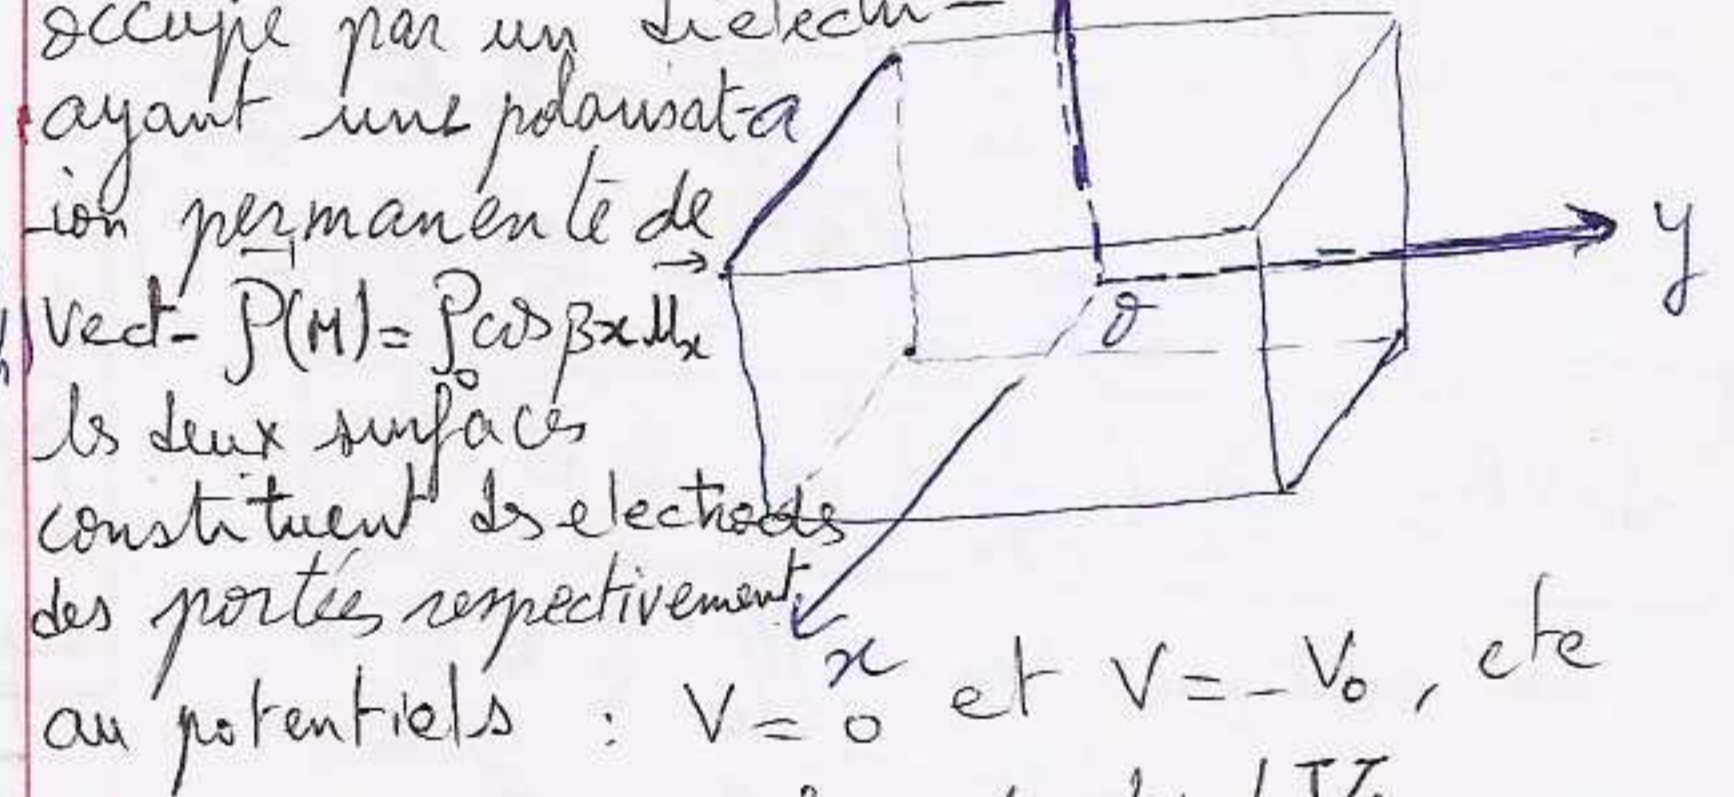 occupé par un dielectri-
ayant une polarisat-
a
-ion permanente de
y
O
Vect- P⃗(M) = P₀ cos βx u⃗x
ls deux surfaces
constituent ds electrods
des portées respectivement
x
au potentiels : V = 0 et V = -V₀, cte